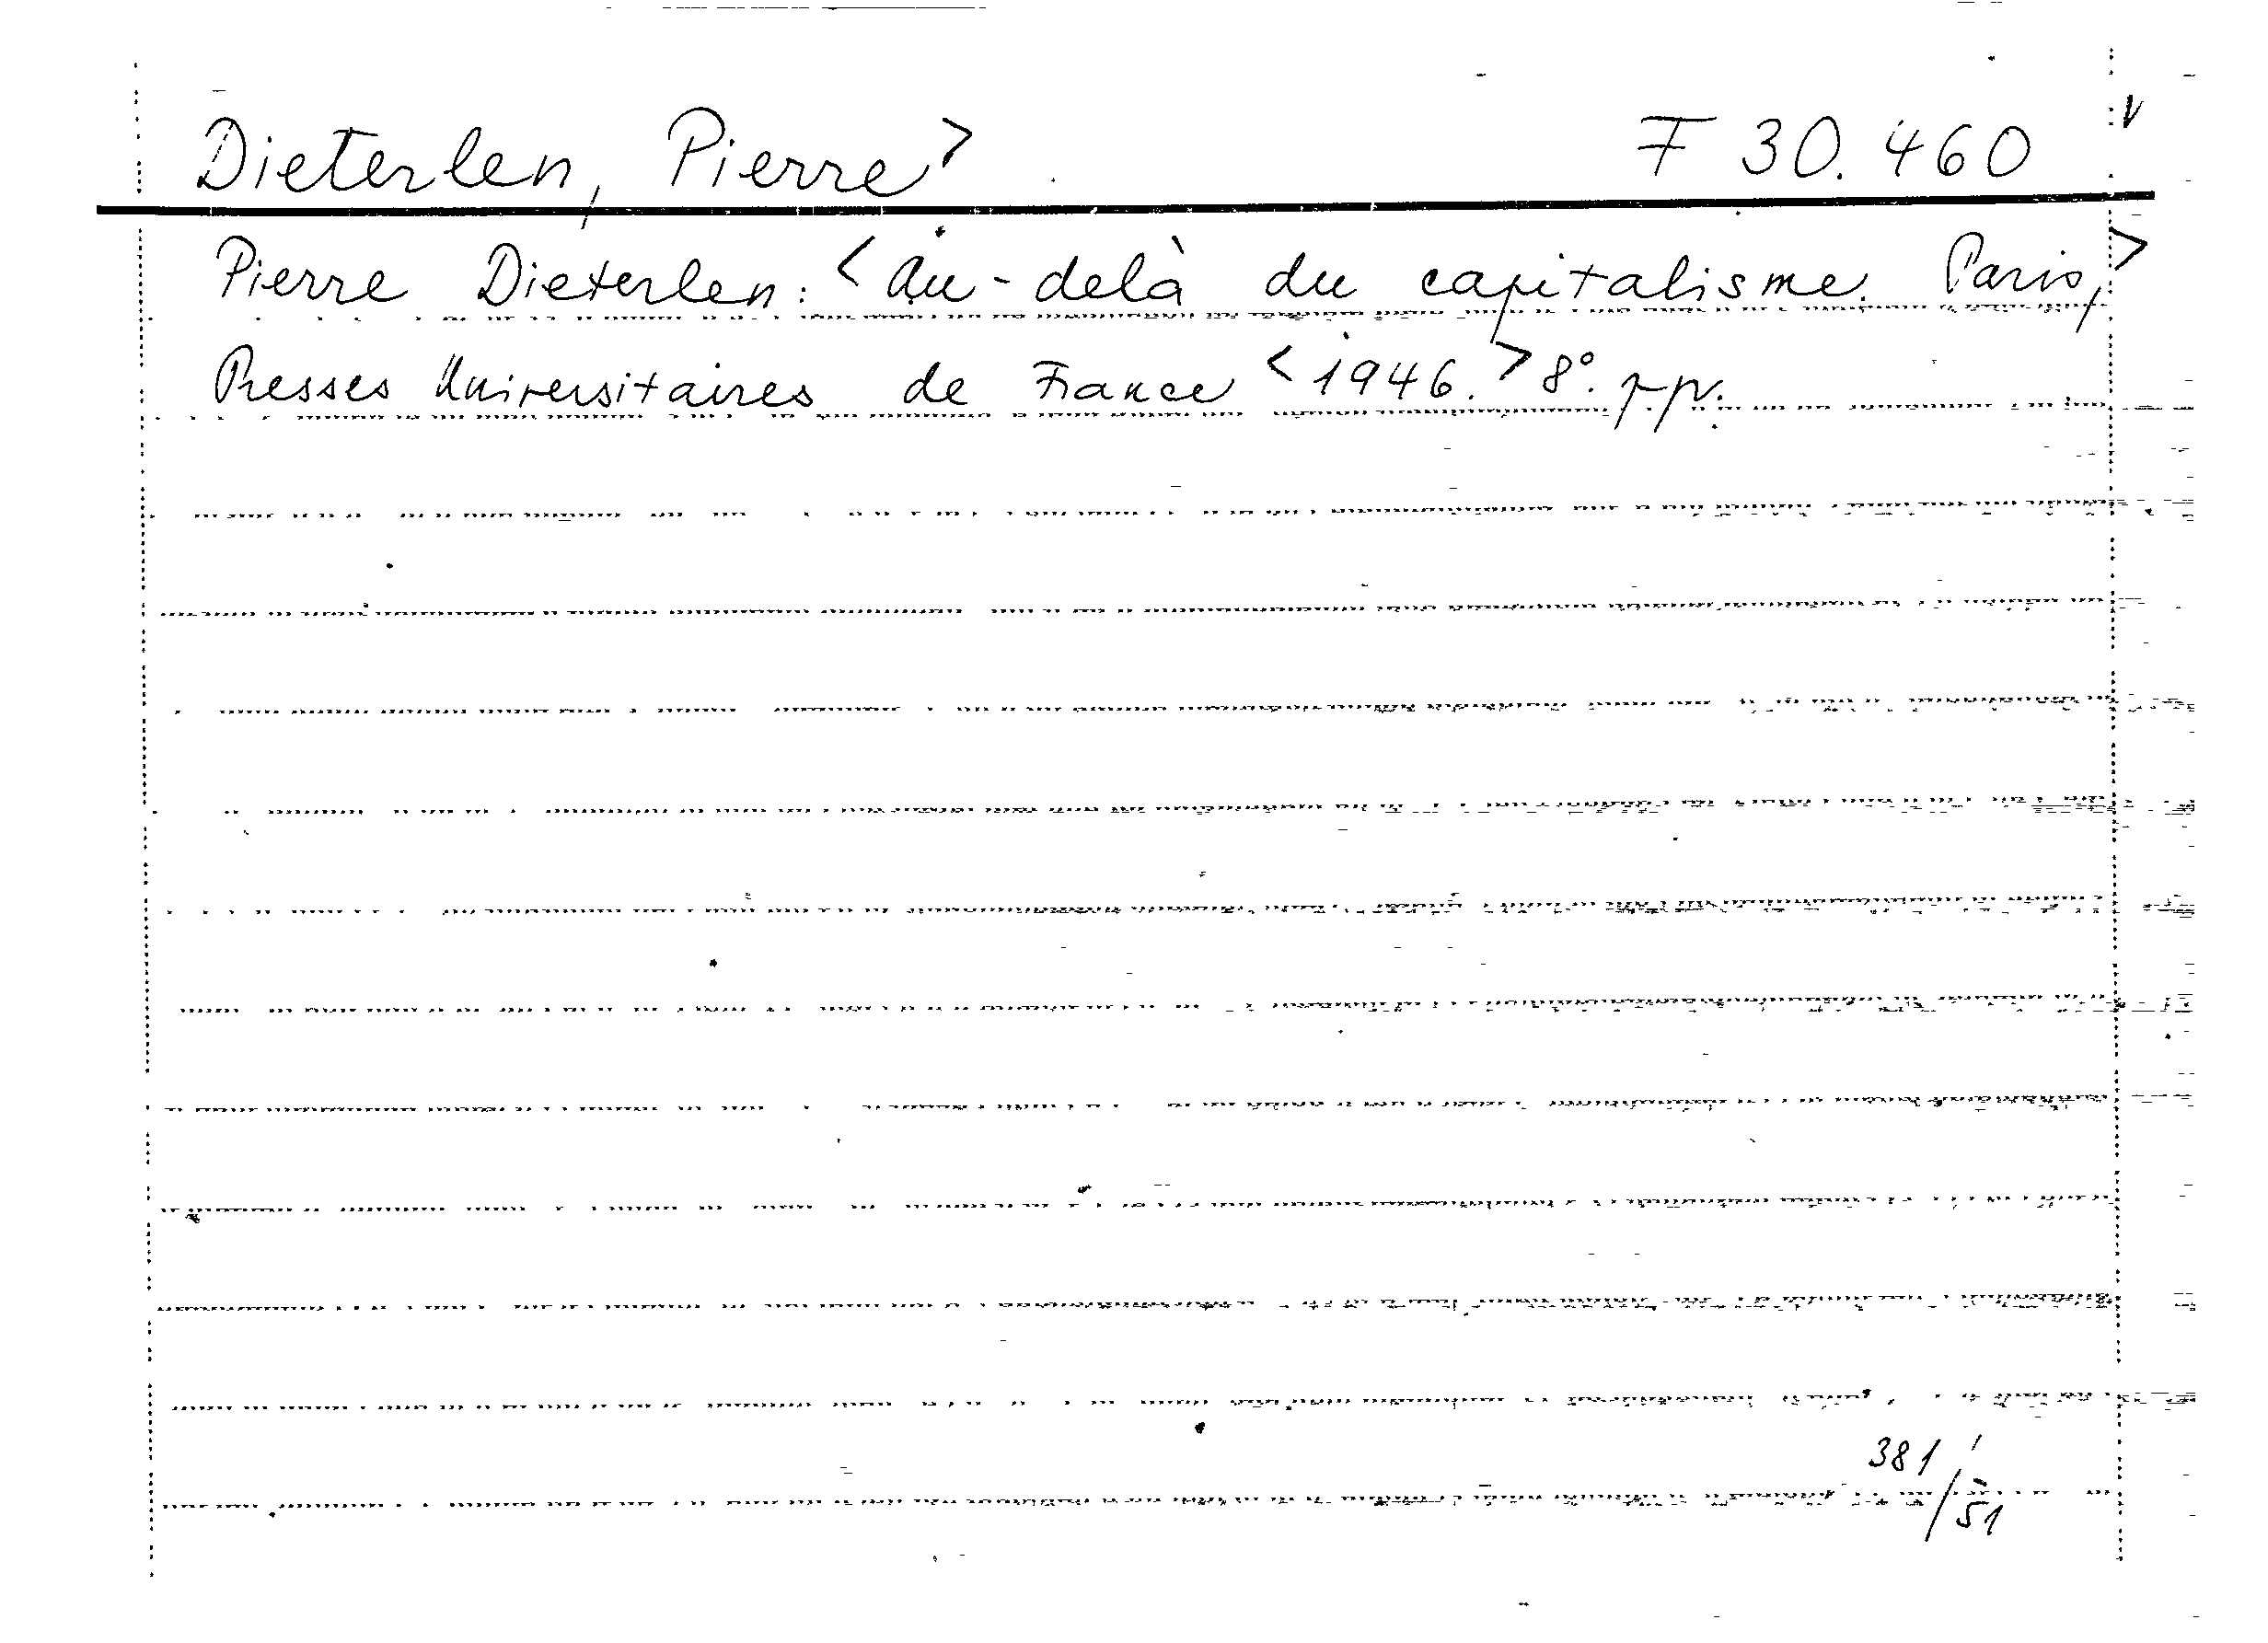 Dieterlen, Pierre> F 30.460 V
Pierre Dieterlen: <Au-delà du capitalisme. Paris,>
Presses Universitaires de France <1946.> 8°. pp.
381/51